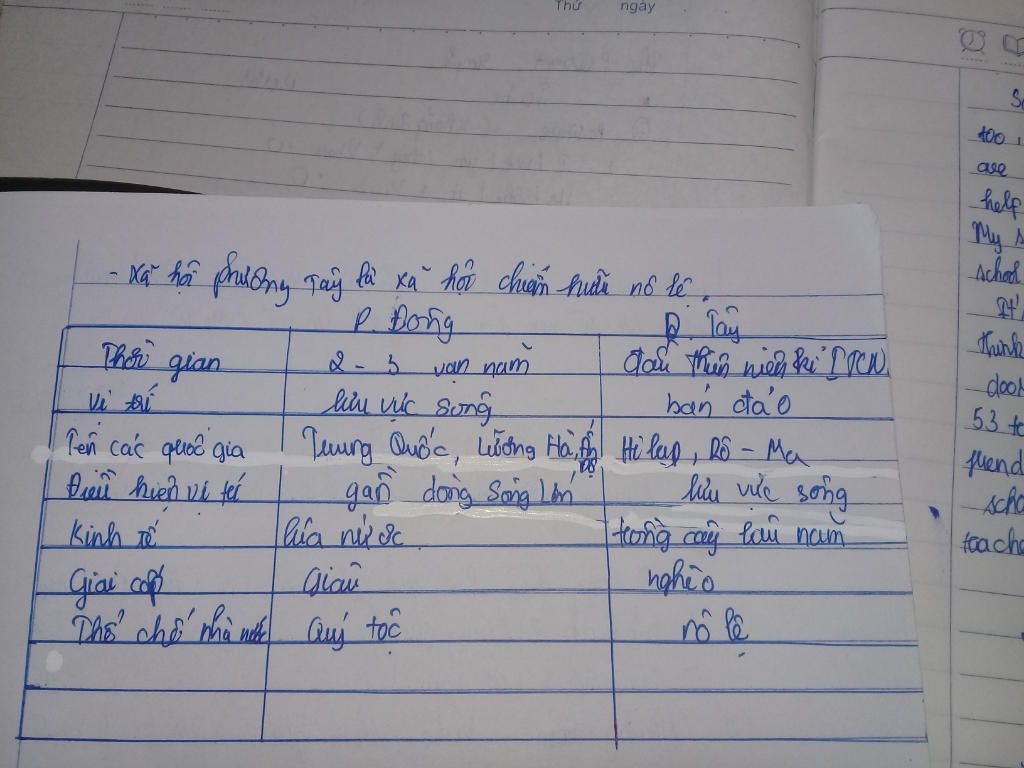 Thứ ngày
- xã hội phương Tây là xã hội chiếm hữu nô lệ.
P. Đông P. Tây
Thời gian 2 - 3 vạn năm đầu thiên niên kỉ I TCN
Vị trí lưu vực sông bán đảo
Tên các quốc gia Trung Quốc, Lưỡng Hà, Ấn Độ Hi Lạp, Rô - Ma
Điều kiện vị trí gần dòng sông lớn lưu vực sông
Kinh tế lúa nước trồng cây lâu năm
Giai cấp Giàu nghèo
Thể chế nhà nước Quý tộc nô lệ
too,
are
help
My
school
think
door
53
friend
teache